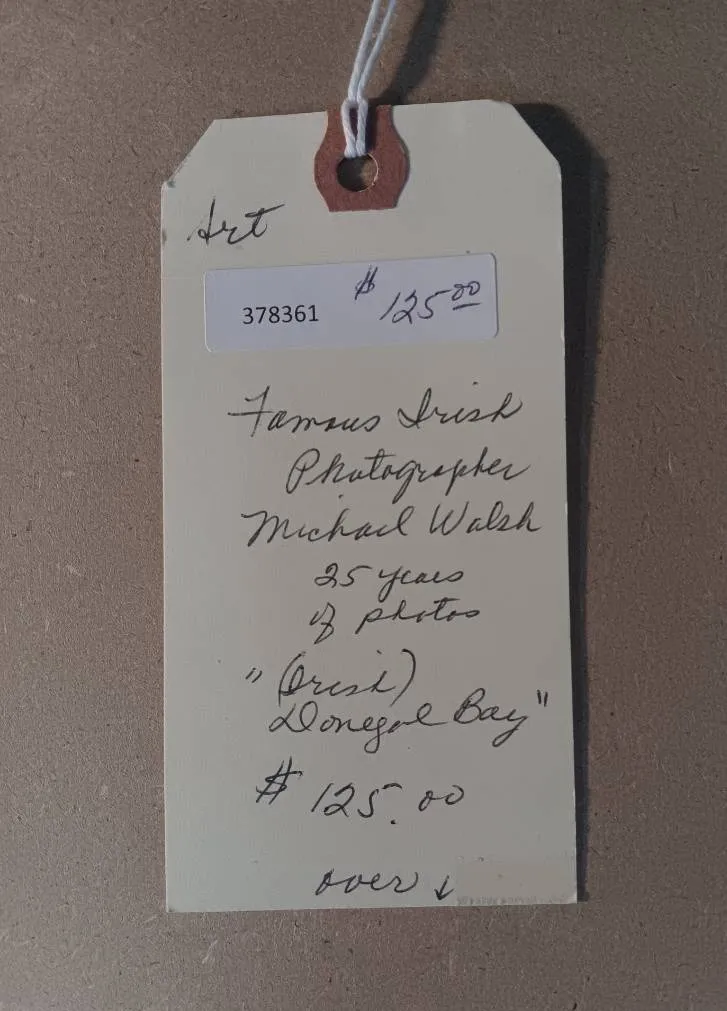 Art
378361 $ 125.00
Famous Irish
Photographer
Michael Walsh
25 years
of photos
" (Irish)
Donegal Bay"
$ 125.00
over ↓